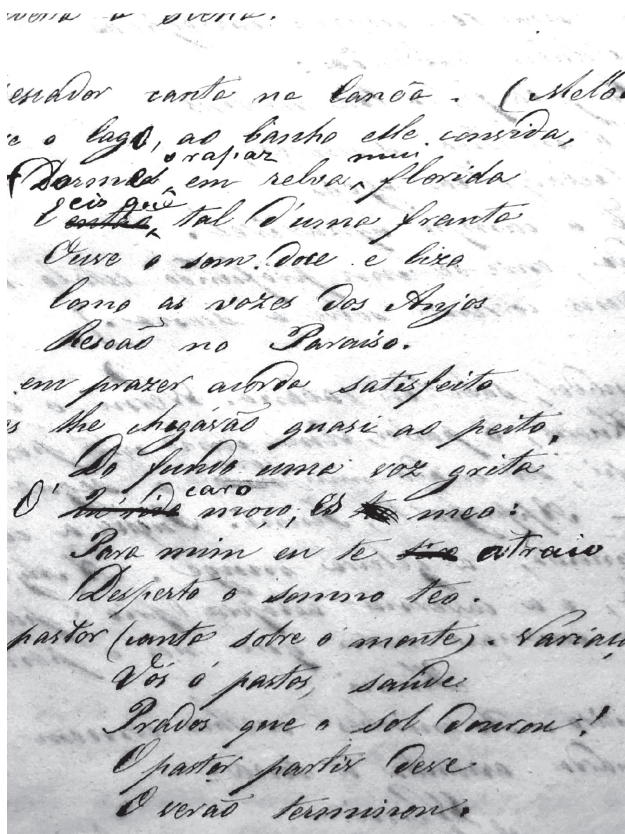 escador canta na Canôa. (Melo
e o lago, ao banho elle convida,
o rapaz mui
em relva florida
eis que
E tal d'uma frauta
Ouve o som doce e lizo
Como as vozes dos Anjos
Resoaõ no Paraiso.
em prazer acorda satisfeito
s lhe chegávão quasi ao peito,
Do fundo uma voz grita
caro
O' moço, és meo:
Para mim eu te atraio
Desperto o somno teo.
pastor (canta sobre o monte). Variaç
Vós ó pastos, saude
Prados que o sol dourou!
O pastor partir deve
O verão terminou.